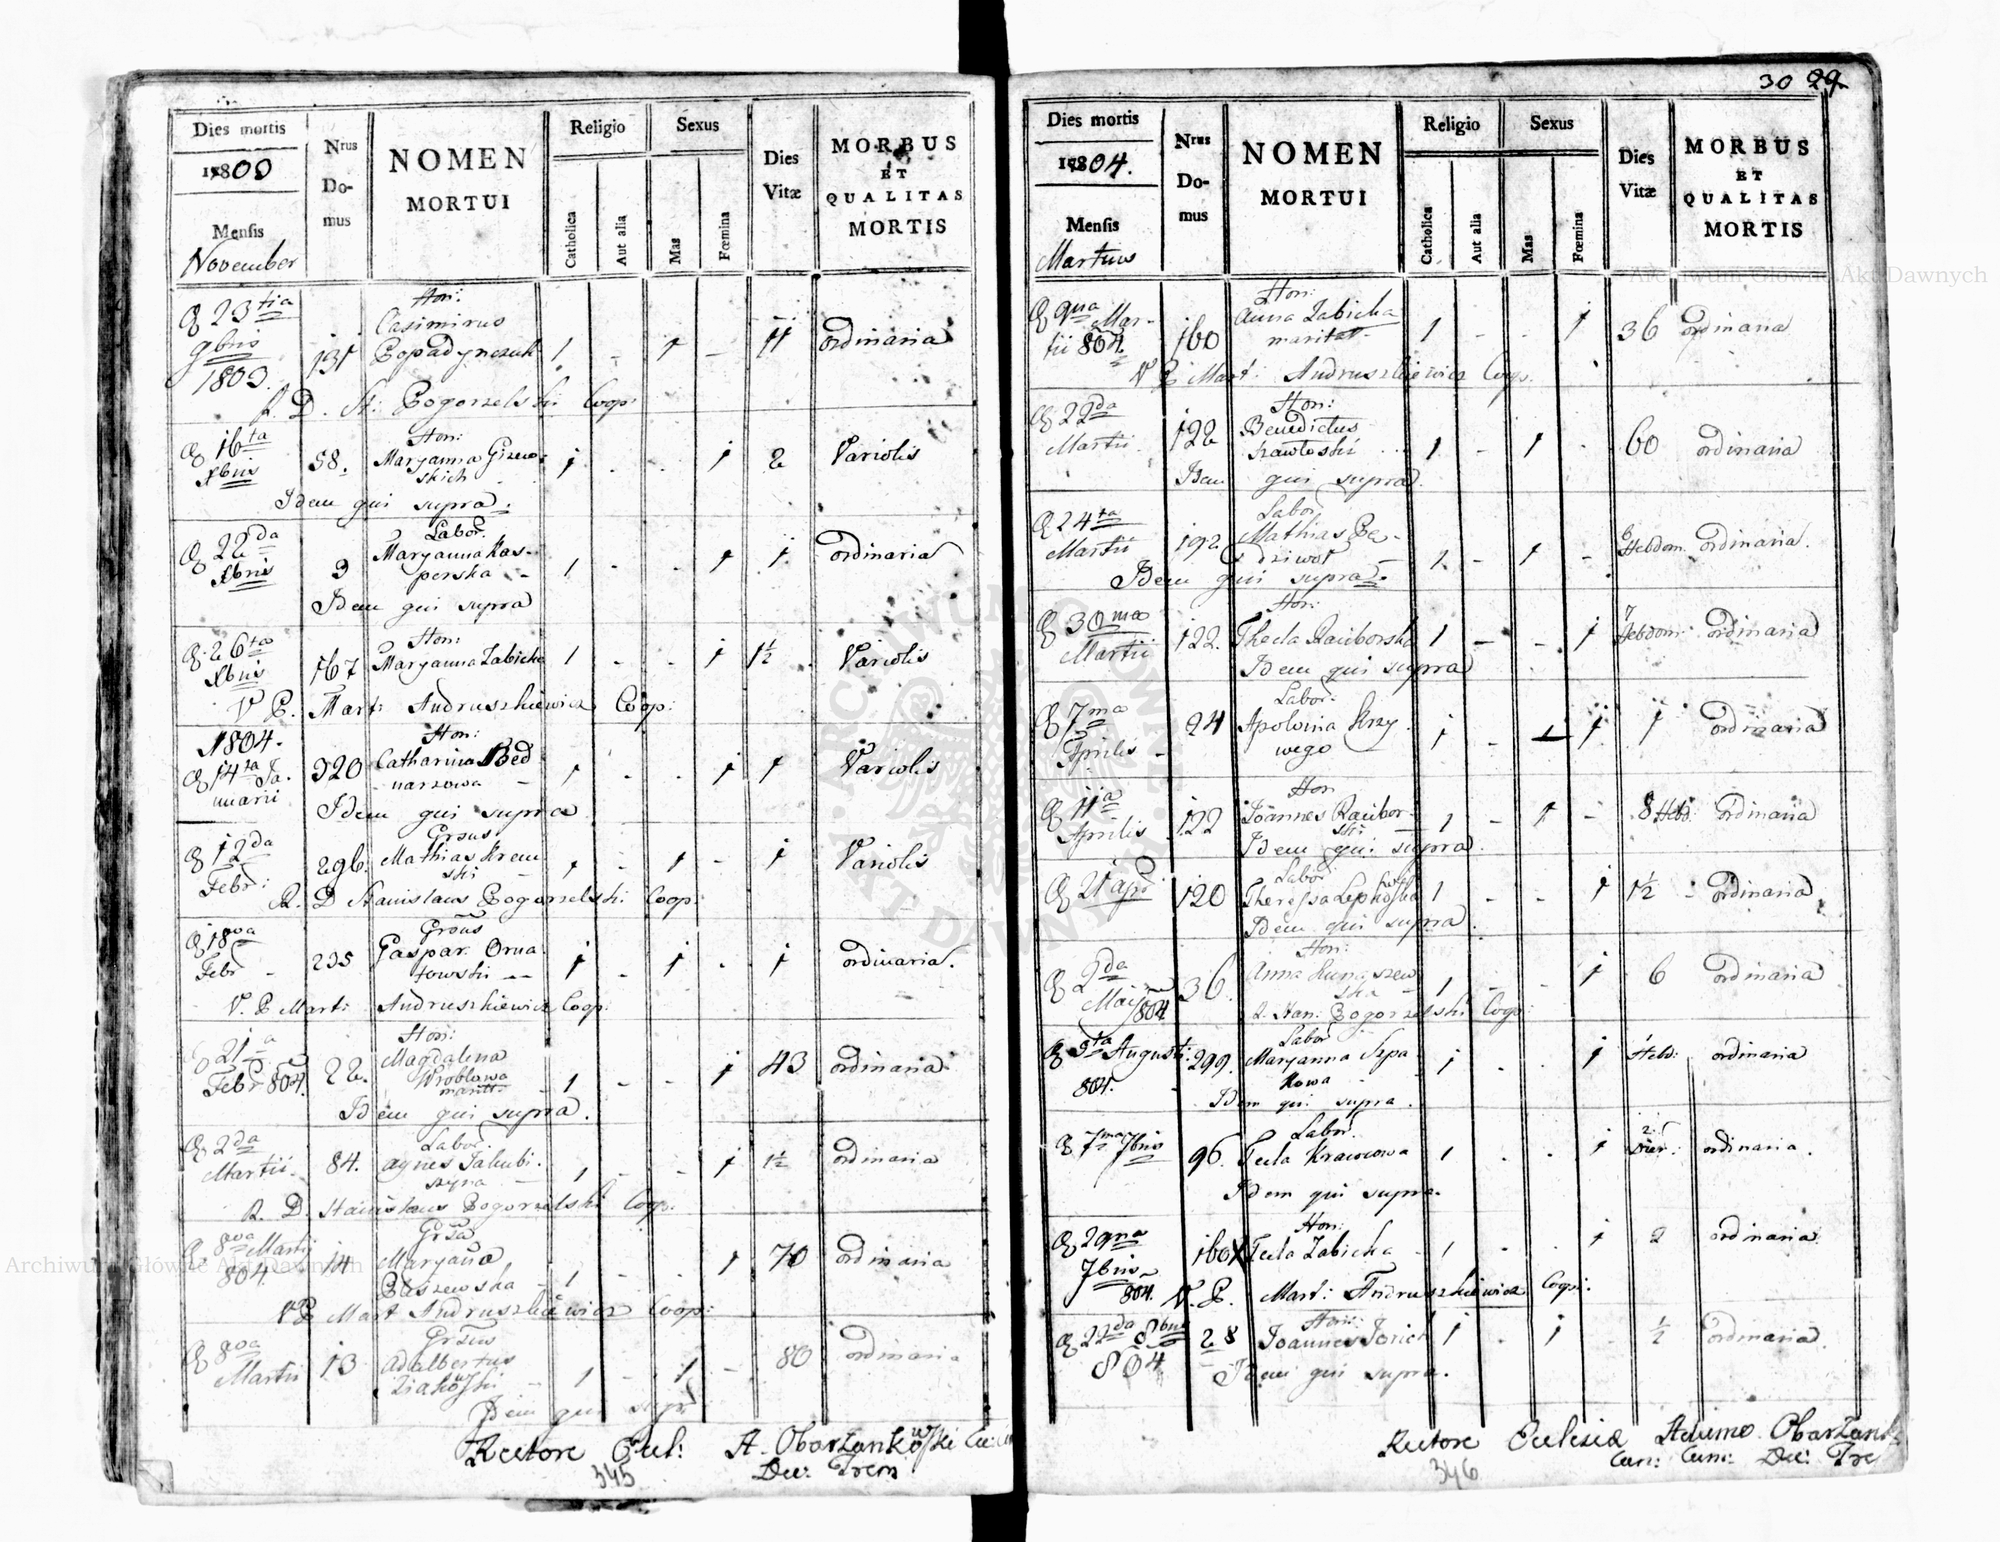 Dies mortis
1803
Mensis
November
Nrus
Do-
mus
NOMEN
MORTUI
Religio
Catholica
Aut alia
Sexus
Mas
Fœmina
Dies
Vitæ
MORBUS
ET
QUALITAS
MORTIS
23tia
9bris
1803.
131
Hon:
Casimirus
Popadynczuk
1 - 1 - 11 ordinaria
R. D. St: Pogorzelski Coop:
16ta
Xbris
58.
Hon:
Maryanna Gizew-
skich
1 - - 1 2 Variolis
Idem qui supra.
22da
Xbris
3
Labor.
Maryanna Kas-
perska
1 - - 1 1 ordinaria
Idem qui supra
26ta
Xbris
167
Hon:
Maryanna Zabicka
1 - - 1 1½ Variolis
V P. Mart: Andruszkiewicz Coop:
1804.
14ta Ja-
nuarii
320
Hon:
Catharina Bed
narzowa
1 - - 1 1 Variolis
Idem qui supra
12da
Febr:
296.
Grosus
Mathias Krem
ski
1 - 1 - 1 Variolis
R. D Stanislaus Pogorzelski Coop
18va
Febr
235
Grosus
Gaspar Orna
towski
1 - 1 - 1 ordinaria.
V. P Mart: Andruszkiewicz Coop:
21a
Febr 804.
22.
Hon:
Magdalena
Wroblowa
maritt.
1 - - 1 43 ordinaria
Idem qui supra.
2da
Martii
84.
Labor.
Agnes Jakubi-
szyna
1 - - 1 1½ ordinaria
R. D. Stanislaus Pogorzelski Coop:
8va Martij
804.
14
Grsa
Maryana
Błaszewska
1 - - 1 70 ordinaria
VP Mart Andruszkiewicz Coop:
8va
Martii
13
Grsus
Adalbertus
Ziakowski
1 - 1 - 80 ordinaria
Idem qui supr
Rectore Eccl: A. Obarzankowski
Dec: Trem
345
30 29
Dies mortis
1804.
Mensis
Martius
Nrus
Do-
mus
NOMEN
MORTUI
Religio
Catholica
Aut alia
Sexus
Mas
Fœmina
Dies
Vitæ
MORBUS
ET
QUALITAS
MORTIS
9na Mar-
tii 804.
160
Hon:
Anna Zabicka
maritat.
1 - - 1 36 ordinaria
V P Mart: Andruszkiewicz Coop.
22da
Martii
122
Hon:
Benedictus
Szawłoski
1 - 1 - 60 ordinaria
Idem qui supra
24ta
Martii
192
Labor
Mathias Be-
dziwoł
1 - 1 - 6 Hebdom. ordinaria.
Idem qui supra.
30ma
Martii
122.
Hon:
Thecla Raciborska
1 - - 1 7 Hebdom: ordinaria
Idem qui supra
7ma
Aprilis
24
Labor.
Apolonia Krzy
wego
1 - 1 1 1 ordinaria
11a
Aprilis
122
Hon
Joannes Racibor-
ski
1 - 1 - 8 Heb: ordinaria
Idem qui supra.
21 apr
120
Labor
Theressa Lepkoska
1 - - 1 1½ ordinaria
Idem qui supra.
2da
Maij
804
36
Hon:
Anna Kunaszew
ska
1 - - 1 6 ordinaria
R. Stan: Pogorzelski Coop:
Augusti.
804.
299.
Labor
Maryanna Szpa
kowa
1 - - 1 1 Heb: ordinaria
Idem qui supra.
7ma 7bris
96.
Labor.
Tecla Krawcowa
1 - - 1 2 Dier: ordinaria.
Idem qui supra.
29na
7bris
804.
160
Hon:
Tecla Zabicka
1 - - 1 2 ordinaria
V. P. Mart: Andruszkiewicz Coop:
22da 8bris
804
28
Hon:
Joannes Jorich
1 - 1 - ½ ordinaria
Idem qui supra.
Rectore Eclesiæ Adamo Obarzank
Can: Cam: Dec: Tre
346
Archiwum Główne Akt Dawnych
Archiwum Główne Akt Dawnych
ARCHIWUM GŁÓWNE AKT DAWNYCH